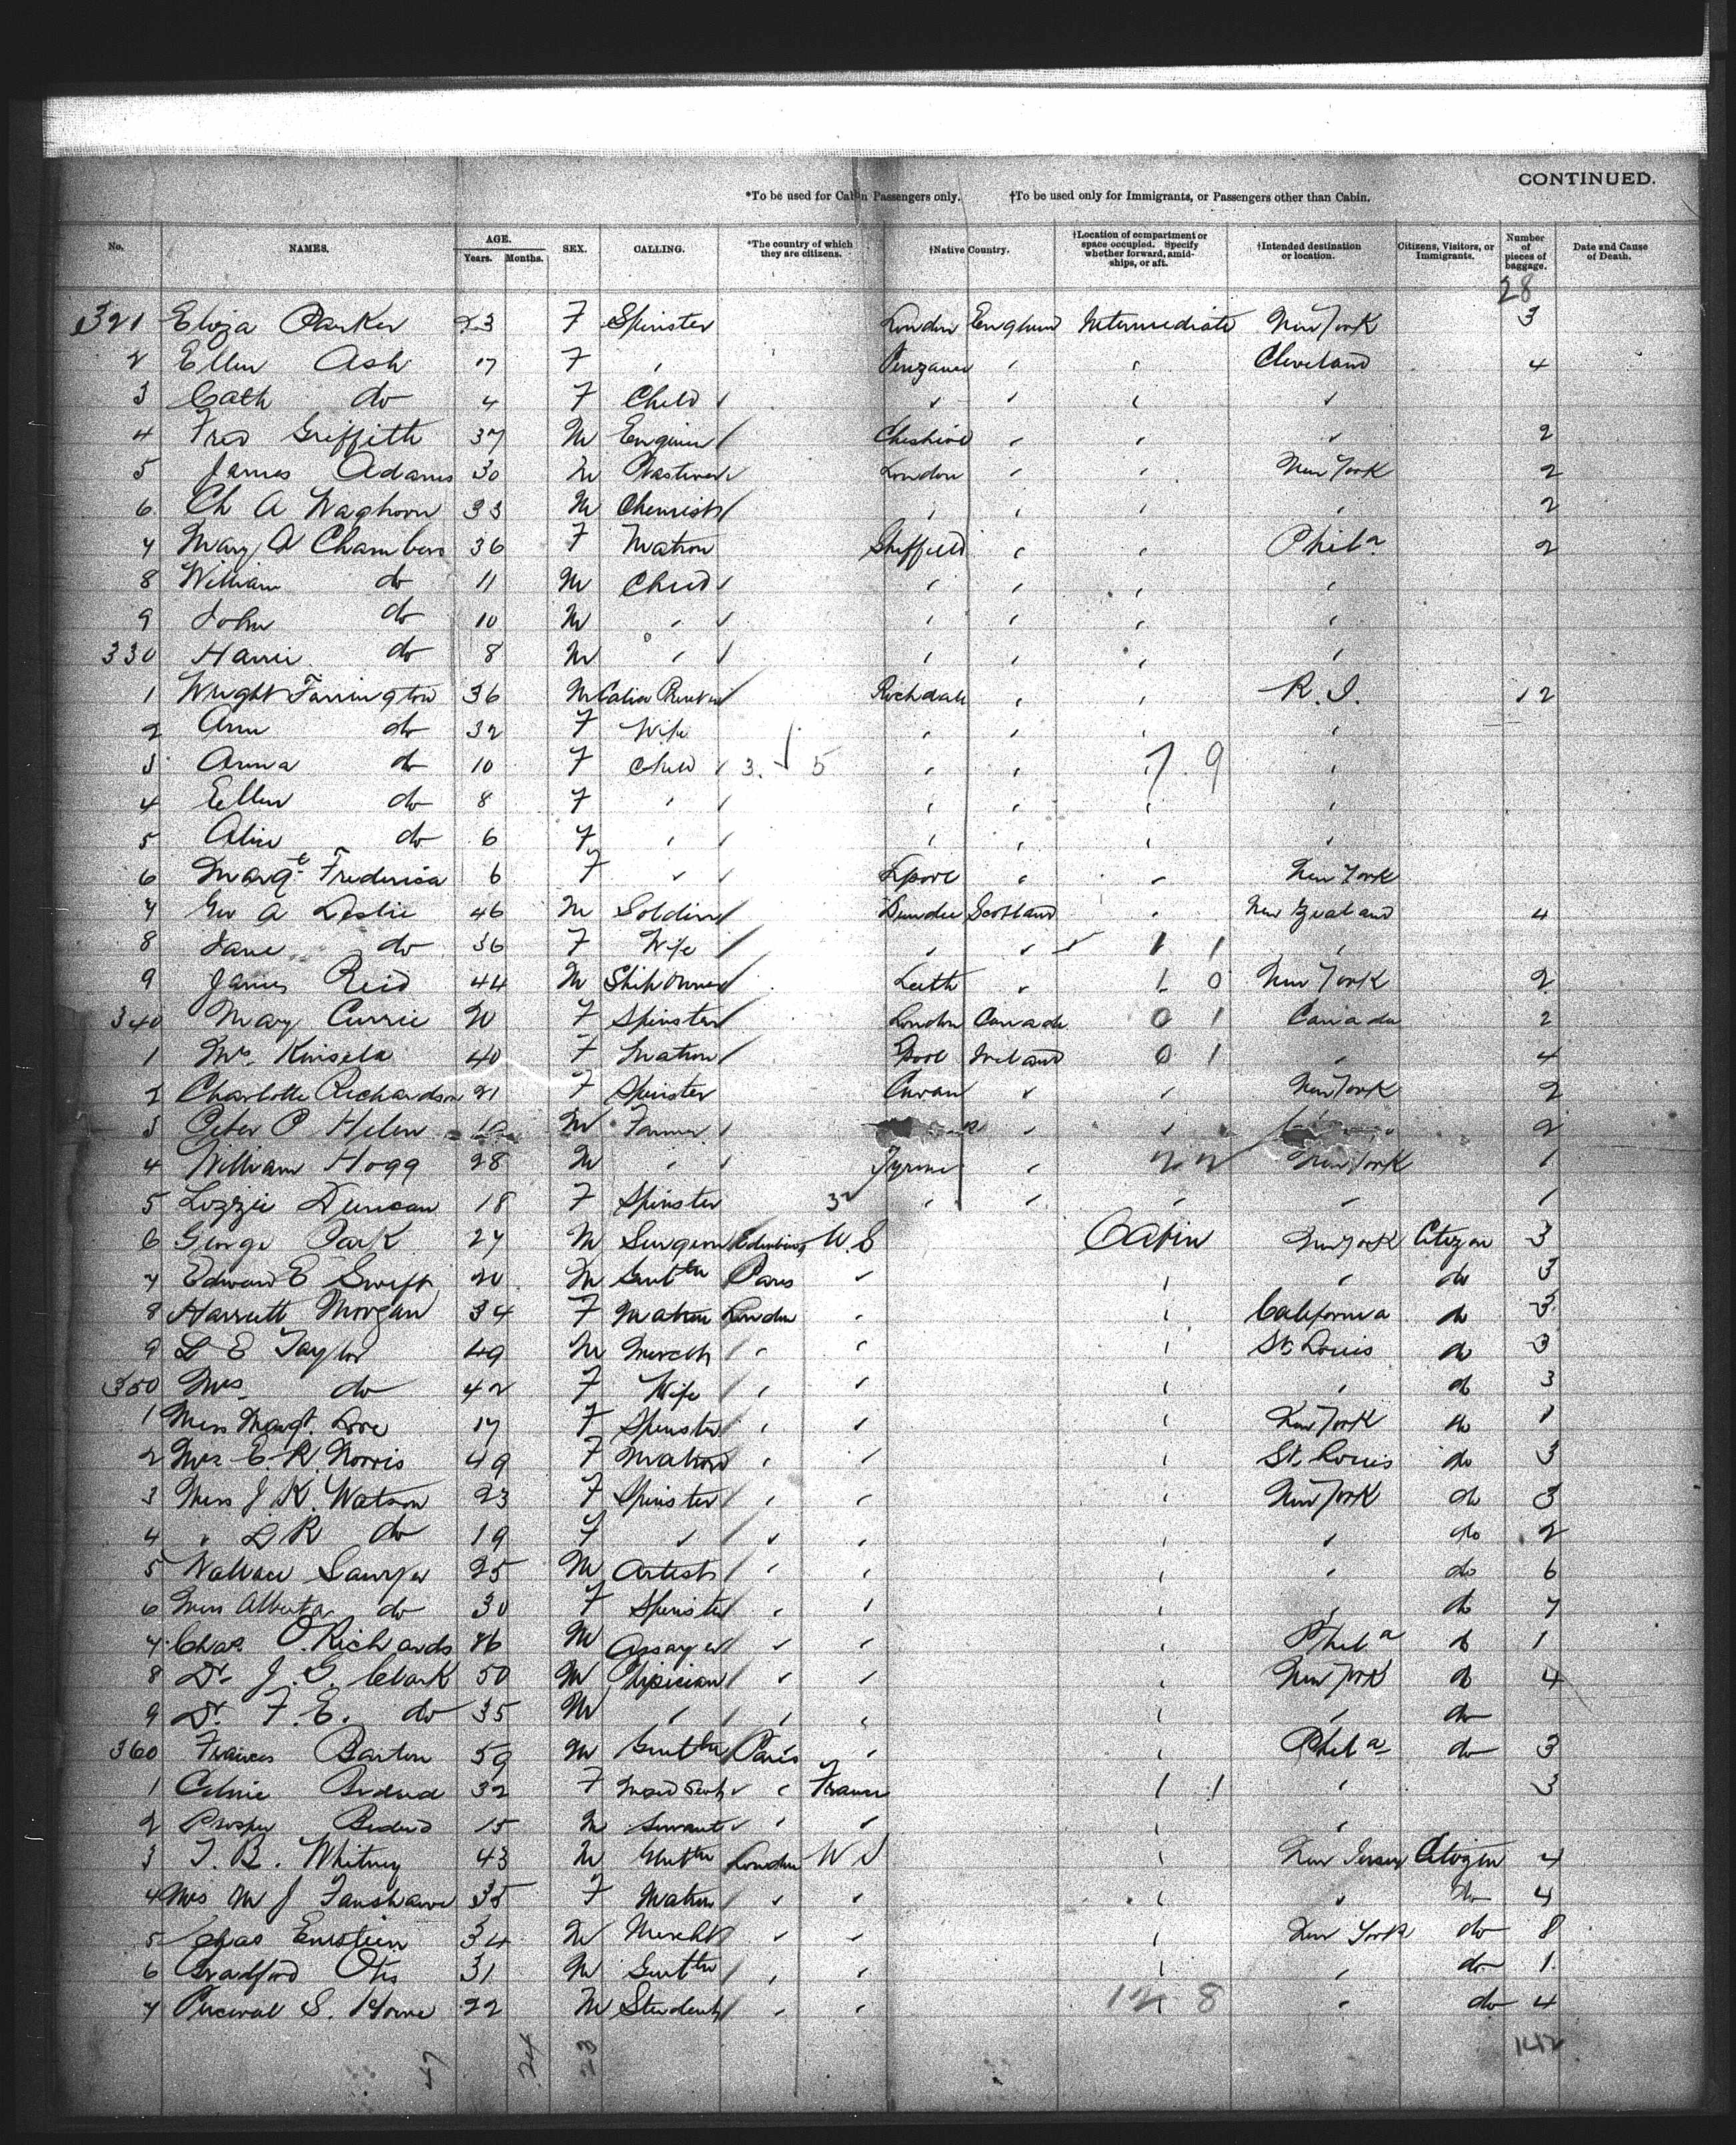 CONTINUED.
*To be used for Cabin Passengers only. †To be used only for Immigrants, or Passengers other than Cabin.
No. NAMES. AGE. Years. Months. SEX. CALLING. *The country of which they are citizens. †Native Country. †Location of compartment or space occupied. Specify whether forward, amidships, or aft. †Intended destination or location. Citizens, Visitors, or Immigrants. Number of pieces of baggage. Date and Cause of Death.
28
321 Eliza Parker 23 F Spinster London England Intermediate New York 3
2 Ellen Ash 17 F " Penzance " " Cleveland 4
3 Cath do 4 F Child " " " "
4 Fred Griffith 37 M Engineer Cheshire " " " 2
5 James Adams 30 M London " " New York 2
6 Ch A Waghorn 33 M Chemist " " " " 2
7 Mary A Chambers 36 F Matron Sheffield " " Phila 2
8 William do 11 M Child " " " "
9 John do 10 M " " " " "
330 Harrie do 8 M " " " " "
1 Wright Farrington 36 M Calico Printer Rochdale " " R. I. 12
2 Ann do 32 F Wife " " " "
3 Anna do 10 F Child 3. 5 " " 7 9 "
4 Ellen do 8 F " " " " "
5 Alice do 6 F " " " " "
6 Margt Frederica 6 F " Lpool " " New York
7 Geo A Leslie 46 M Soldier Dundee Scotland " New Zealand 4
8 Jane do 36 F Wife " " 1 1 "
9 James Reid 44 M Ship Owner Leith " 1 0 New York 2
340 Mary Currie 20 F Spinster London Canada 0 1 Canada 2
1 Mrs Kinsela 40 F Matron Lpool Ireland 0 1 " 4
2 Charlotte Richardson 21 F Spinster Cavan " " New York 2
3 Peter P Helen M Farmer " " 2
4 William Hogg 28 M " Tyrone " 22 New York 1
5 Lizzie Duncan 18 F Spinster 32 " " " " 1
6 George Park 27 M Surgeon Edinburg U.S Cabin New York Citizen 3
7 Edward E Swift 20 M Gentln Paris " " " do 3
8 Harriett Morgan 34 F Matron London " " California do 3
9 L E Taylor 49 M Mercht " " " St Louis do 3
350 Mrs do 42 F Wife " " " " do 3
1 Miss Margt. Love 17 F Spinster " " " New York do 1
2 Mrs E. R. Norris 49 F Matron " " " St. Louis do 3
3 Miss J K. Watson 23 F Spinster " " " New York do 3
4 " L R do 19 F " " " " " do 2
5 Wallace Sawyer 25 M Artist " " " " do 6
6 Miss Alberta do 30 F Spinster " " " " do 7
7 Chas. O. Richards M Assayer " " " Phila do 1
8 Dr J. G. Clark 50 M Physician " " " New York do 4
9 Dr. F. E. do 35 M " " " " " do
360 Frances Barton 59 M Gentln Paris " " Phila do 3
1 Celine 32 F Maid Servt " France 1 1 " 3
2 Prosper 15 M Servant " " " "
3 T. B. Whitney 43 M Gentln London U S " New Jersey Citizen 4
4 Mrs M J Fanshawe 35 F Matron " " " " do 4
5 Chas Einstein 34 M Mercht " " " New York do 8
6 Bradford Otis 31 M Gentln " " " " do 1
7 Percival S. 22 M Student " " 12 8 " do 4
47 24 23 142